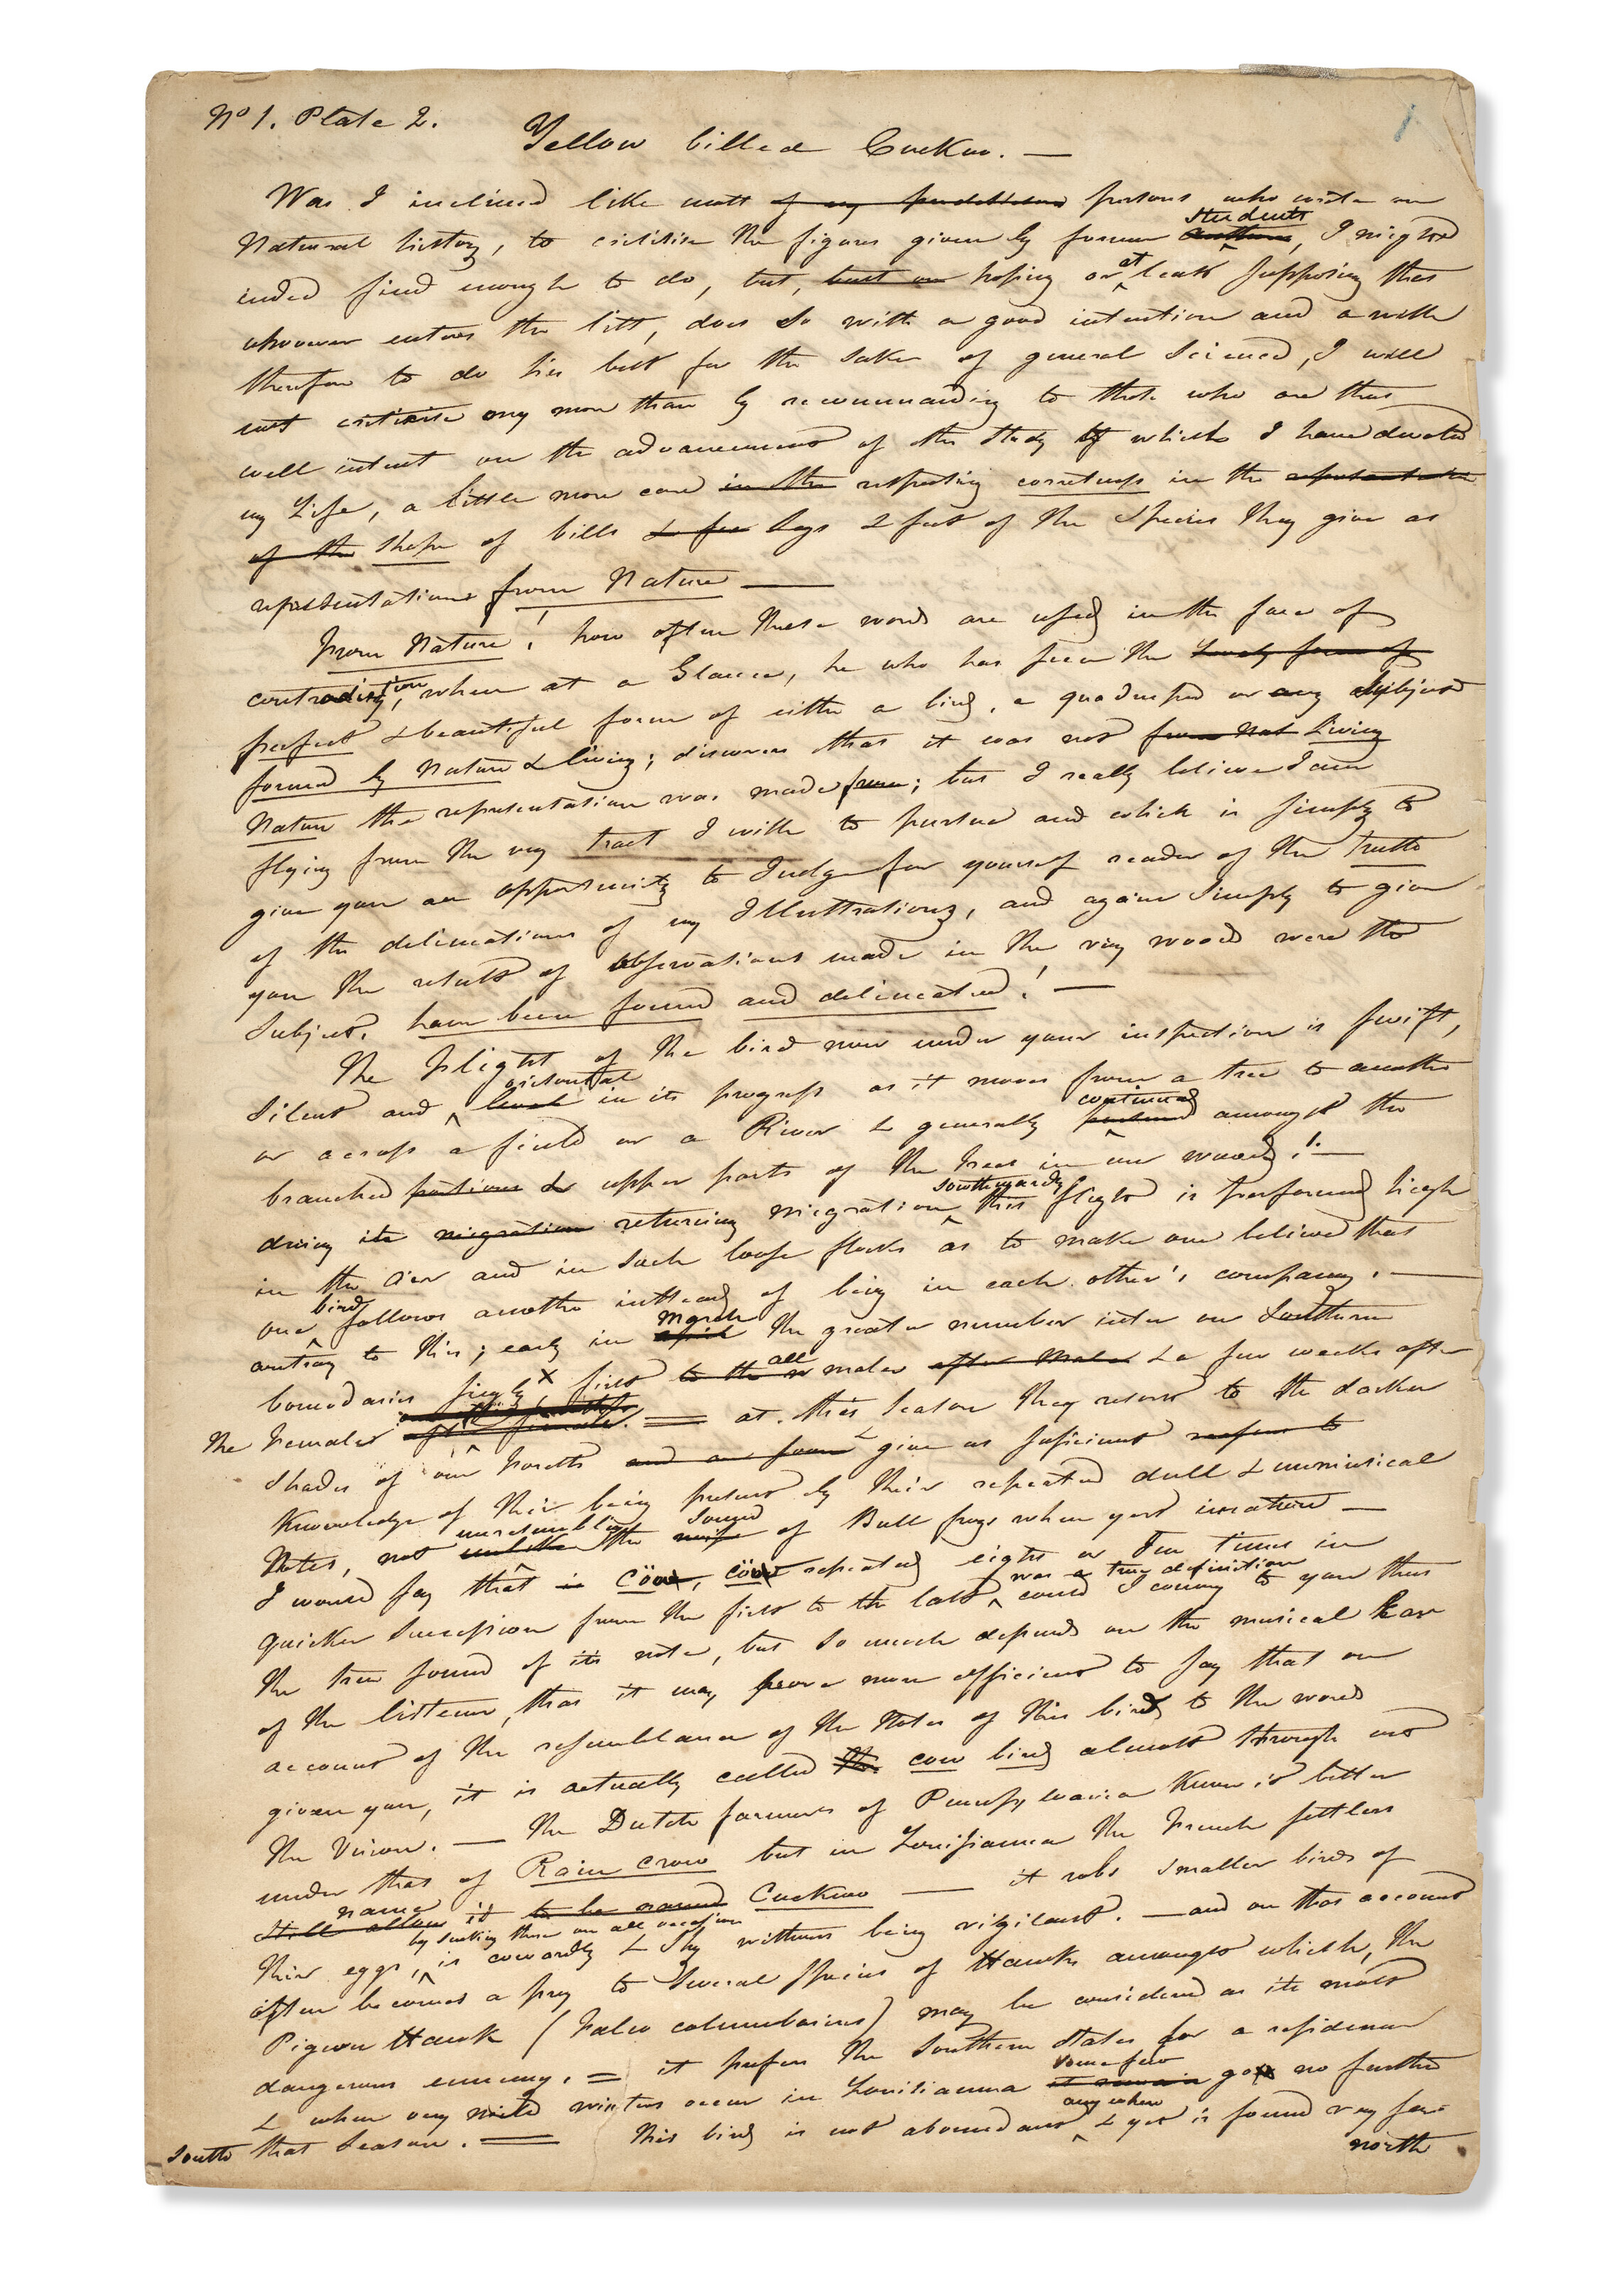 No 1. Plate 2.
Yellow billed Cuckoo. —
Was I inclined like most of my predecessors persons who write on
Natural history, to criticise the figures given by former authors students, I might
indeed find enough to do, but, but on hoping or at least supposing that
whoever enters the list, does so with a good intention and a wish
therefore to do his best for the sake of general Science, I will
not criticise any more than by recommanding to those who are thus
well intent on the advancement of the Study of which I have devoted
my Life, a little more care in the respecting corretness in the representation
of the shape of bills & fee legs & feet of the Species they give as
representations from Nature —
From Nature! how often these words are used in the face of
contradiction, when at a Glance, he who has seen the lovely form of
perfect & beautiful form of either a bird, a quadruped or any subject
formed by Nature & living; discovers that it was not from Nat Living
Nature the representation was made from; but I really believe I am
flying from the very tract I wish to pursue and which is simply to
give you an opportunity to Judge for yourself reader of the truth
of the delineations of my Illustrations, and again Simply to give
you the result of observations made in the very woods were the
Subject. have been found and delineated! —
The Flight of the bird now under your inspection is swift,
Silent and level orisontal in its progress as it moves from a tree to another
or across a field or a River & generally continued amongst the
branched portions & upper parts of the trees in our woods! —
during its migration returning migration southwardly this flight is performed high
in the air and in such loose flocks as to make one believe that
one bird follows another instead of being in each other's company. —
contray to this; early in april March the greater number enter our Southern
boundaries singly, x first to the all males after Males & a few weeks after
The Females — at this Season they resort to the darker
Shades of our Forests and are soon & give us suficient reason to
Knowledge of their being present by their repeated dull & unmusical
Notes, not unlike unresembling the noise sound of Bull frogs when yest inmature —
I would say that is cöw, cöw repeated eight or Ten times in
quicker Succession from the first to the last was a true definition could I convey to you thus
the true sound of its note, but so much depends on the musical Ear
of the listener, that it may prove more efficient to say that on
account of the resemblance of the Notes of this bird to the words
given you, it is actually called the cow bird almost through out
the Union. — The Dutch farmers of Pensylvania Know it better
under that of Rain Crow but in Louisianna the French settlers
still allow name it to be named Cuckoo — it robs smaller birds of
their eggs, by sucking them on all occasion is cowardly & Shy without being vigilant. — and on that account
often becomes a prey to Several Species of Hawks amongst which, the
Pigeon Hawk (Falco columbarius) may be considered as its most
dangerous ennemy. = it prefers the Southern States for a residence
& when very mild winters occur in Louisianna it remain some few go no further
South that Season. = This bird is not aboundant any where & yet is found very far
north